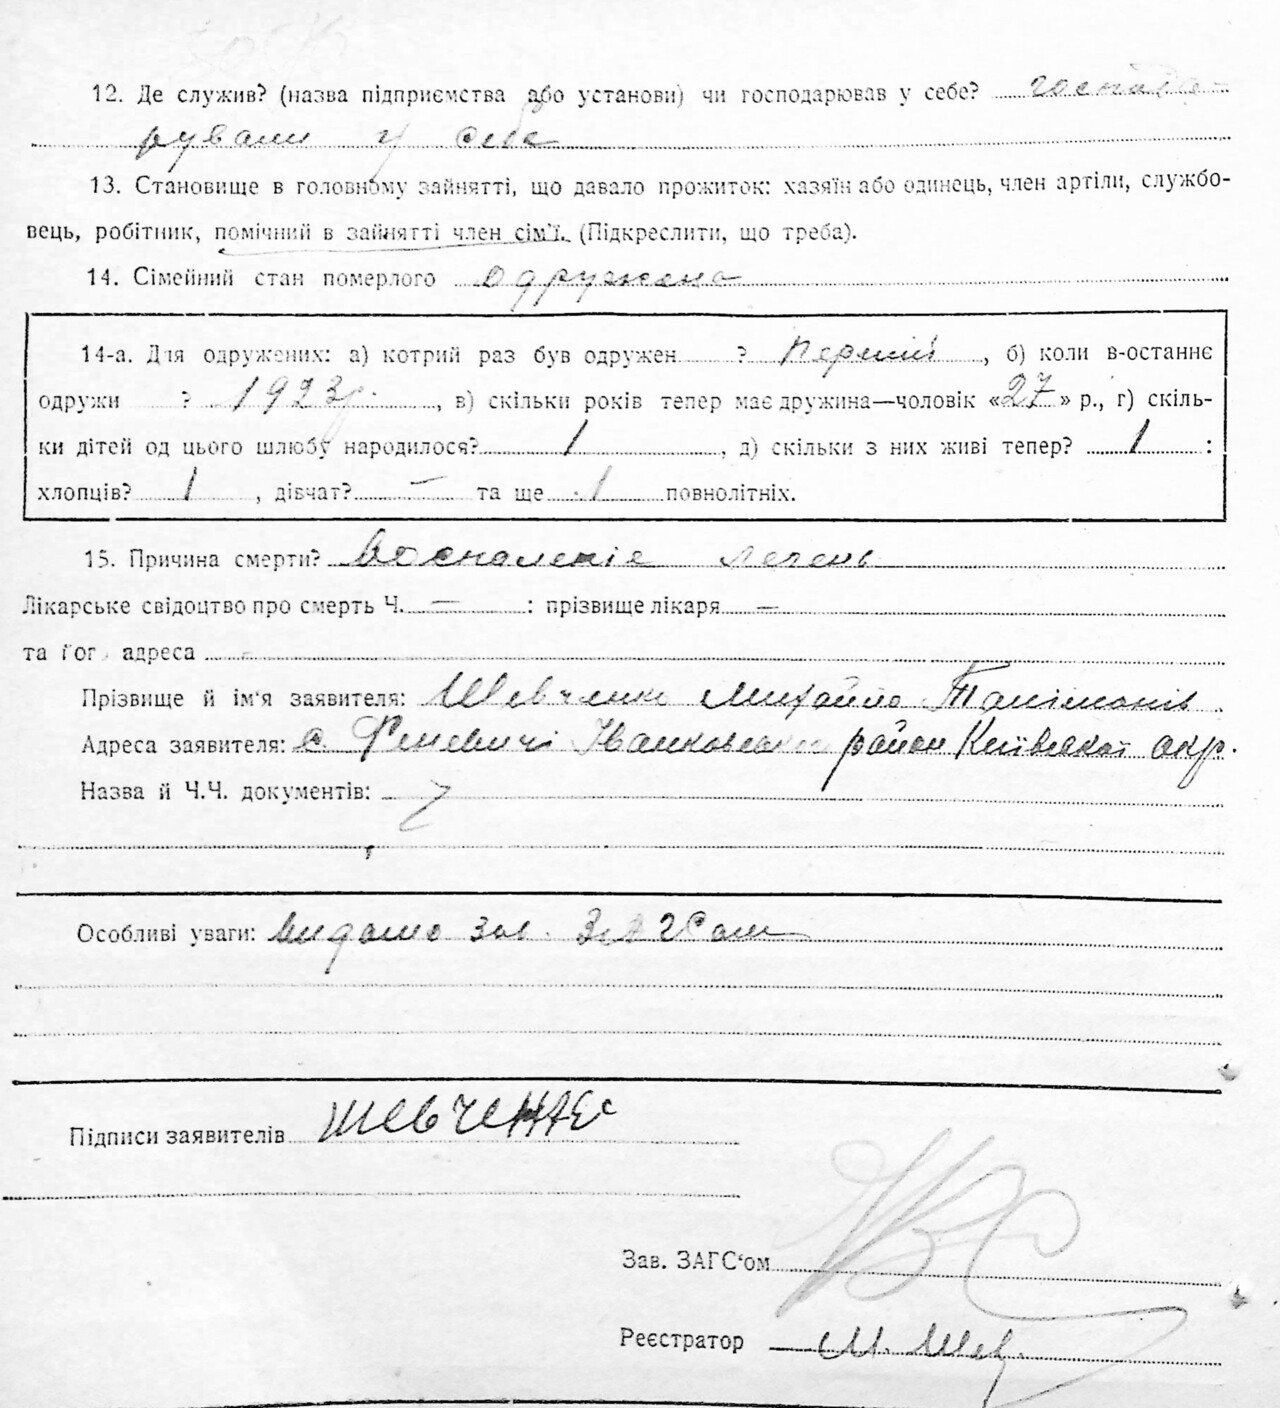 12. Де служив? (назва підприємства або установи) чи господарював у себе? господа-
рували у себе
13. Становище в головному зайнятті, що давало прожиток: хазяїн або одинець, член артіли, службо-
вець, робітник, помічний в зайнятті член сім'ї. (Підкреслити, що треба).
14. Сімейний стан померлого одружена
14-а. Для одружених: а) котрий раз був одружен ? перший, б) коли в-останнє
одружи ? 1923р., в) скільки років тепер має дружина—чоловік «27» р., г) скіль-
ки дітей од цього шлюбу народилося? 1, д) скільки з них живі тепер? 1:
хлопців? 1, дівчат? — та ще 1 повнолітніх.
15. Причина смерти? Воспаленіе легень
Лікарське свідоцтво про смерть Ч. — : прізвище лікаря —
та його адреса -
Прізвище й ім'я заявителя: Шевченко Михайло
Адреса заявителя: с. Феневичі Іванковського район Київської окр.
Назва й Ч.Ч. документів:
Особливі уваги: видано зав. ЗАГСом
Підписи заявителів
Зав. ЗАГС'ом
Реєстратор М. Шев.